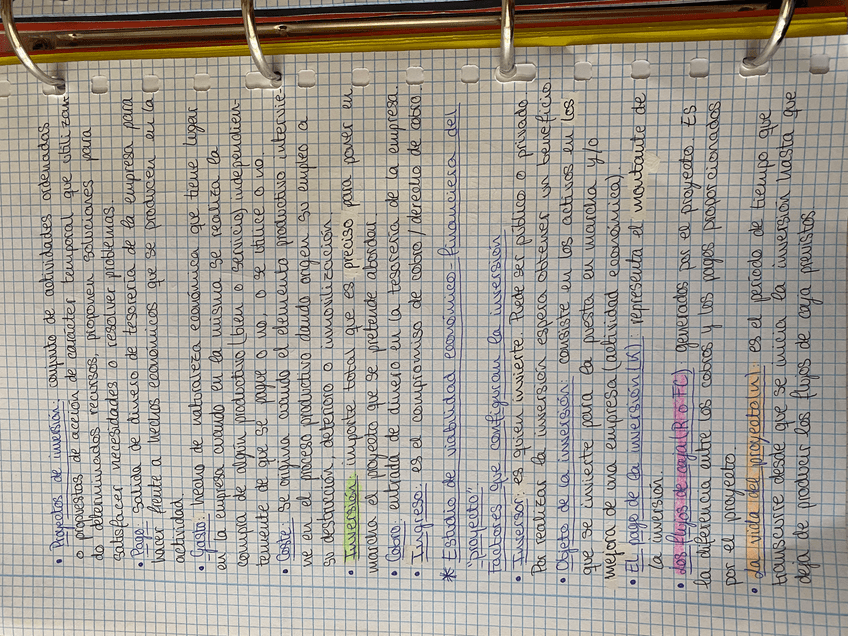 • Proyectos de inversión: conjunto de actividades ordenadas
o propuestas de acción de carácter temporal que utilizan-
do determinados recursos, proponen soluciones para
satisfacer necesidades o resolver problemas.
• Pago: salida de dinero de tesorería de la empresa para
hacer frente a hechos económicos que se producen en la
actividad.
• Gasto: hecho de naturaleza económica que tiene lugar
en la empresa cuando en la misma se realiza la
compra de algún productivo (bien o servicio) independien-
temente de que se pague o no, o se utilice o no.
• Coste: se origina cuando el elemento productivo intervie-
ne en el proceso productivo dando origen su empleo a
su destrucción deterioro o inmovilización
• Inversión: importe total que es preciso para poner en
marcha el proyecto que se pretende abordar
• Cobro: entrada de dinero en la tesorería de la empresa.
• Ingreso: es el compromiso de cobro / derecho de cobro.
* Estudio de viabilidad económico-financiera del
"proyecto"
Factores que configuran la inversión
• Inversor: es quien invierte. Puede ser público o privado
Por realizar la inversión espera obtener un beneficio.
• Objeto de la inversión: consiste en los activos en los
que se invierte para la puesta en marcha y/o
mejora de una empresa (actividad económica)
• El pago de la inversión (K): representa el montante de
la inversión.
• Los flujos de caja (R o FC) generados por el proyecto Es
la diferencia entre los cobros y los pagos proporcionados
por el proyecto
• La vida del proyecto (n): es el período de tiempo que
transcurre desde que se inicia la inversión hasta que
deja de producir los flujos de caja previstos